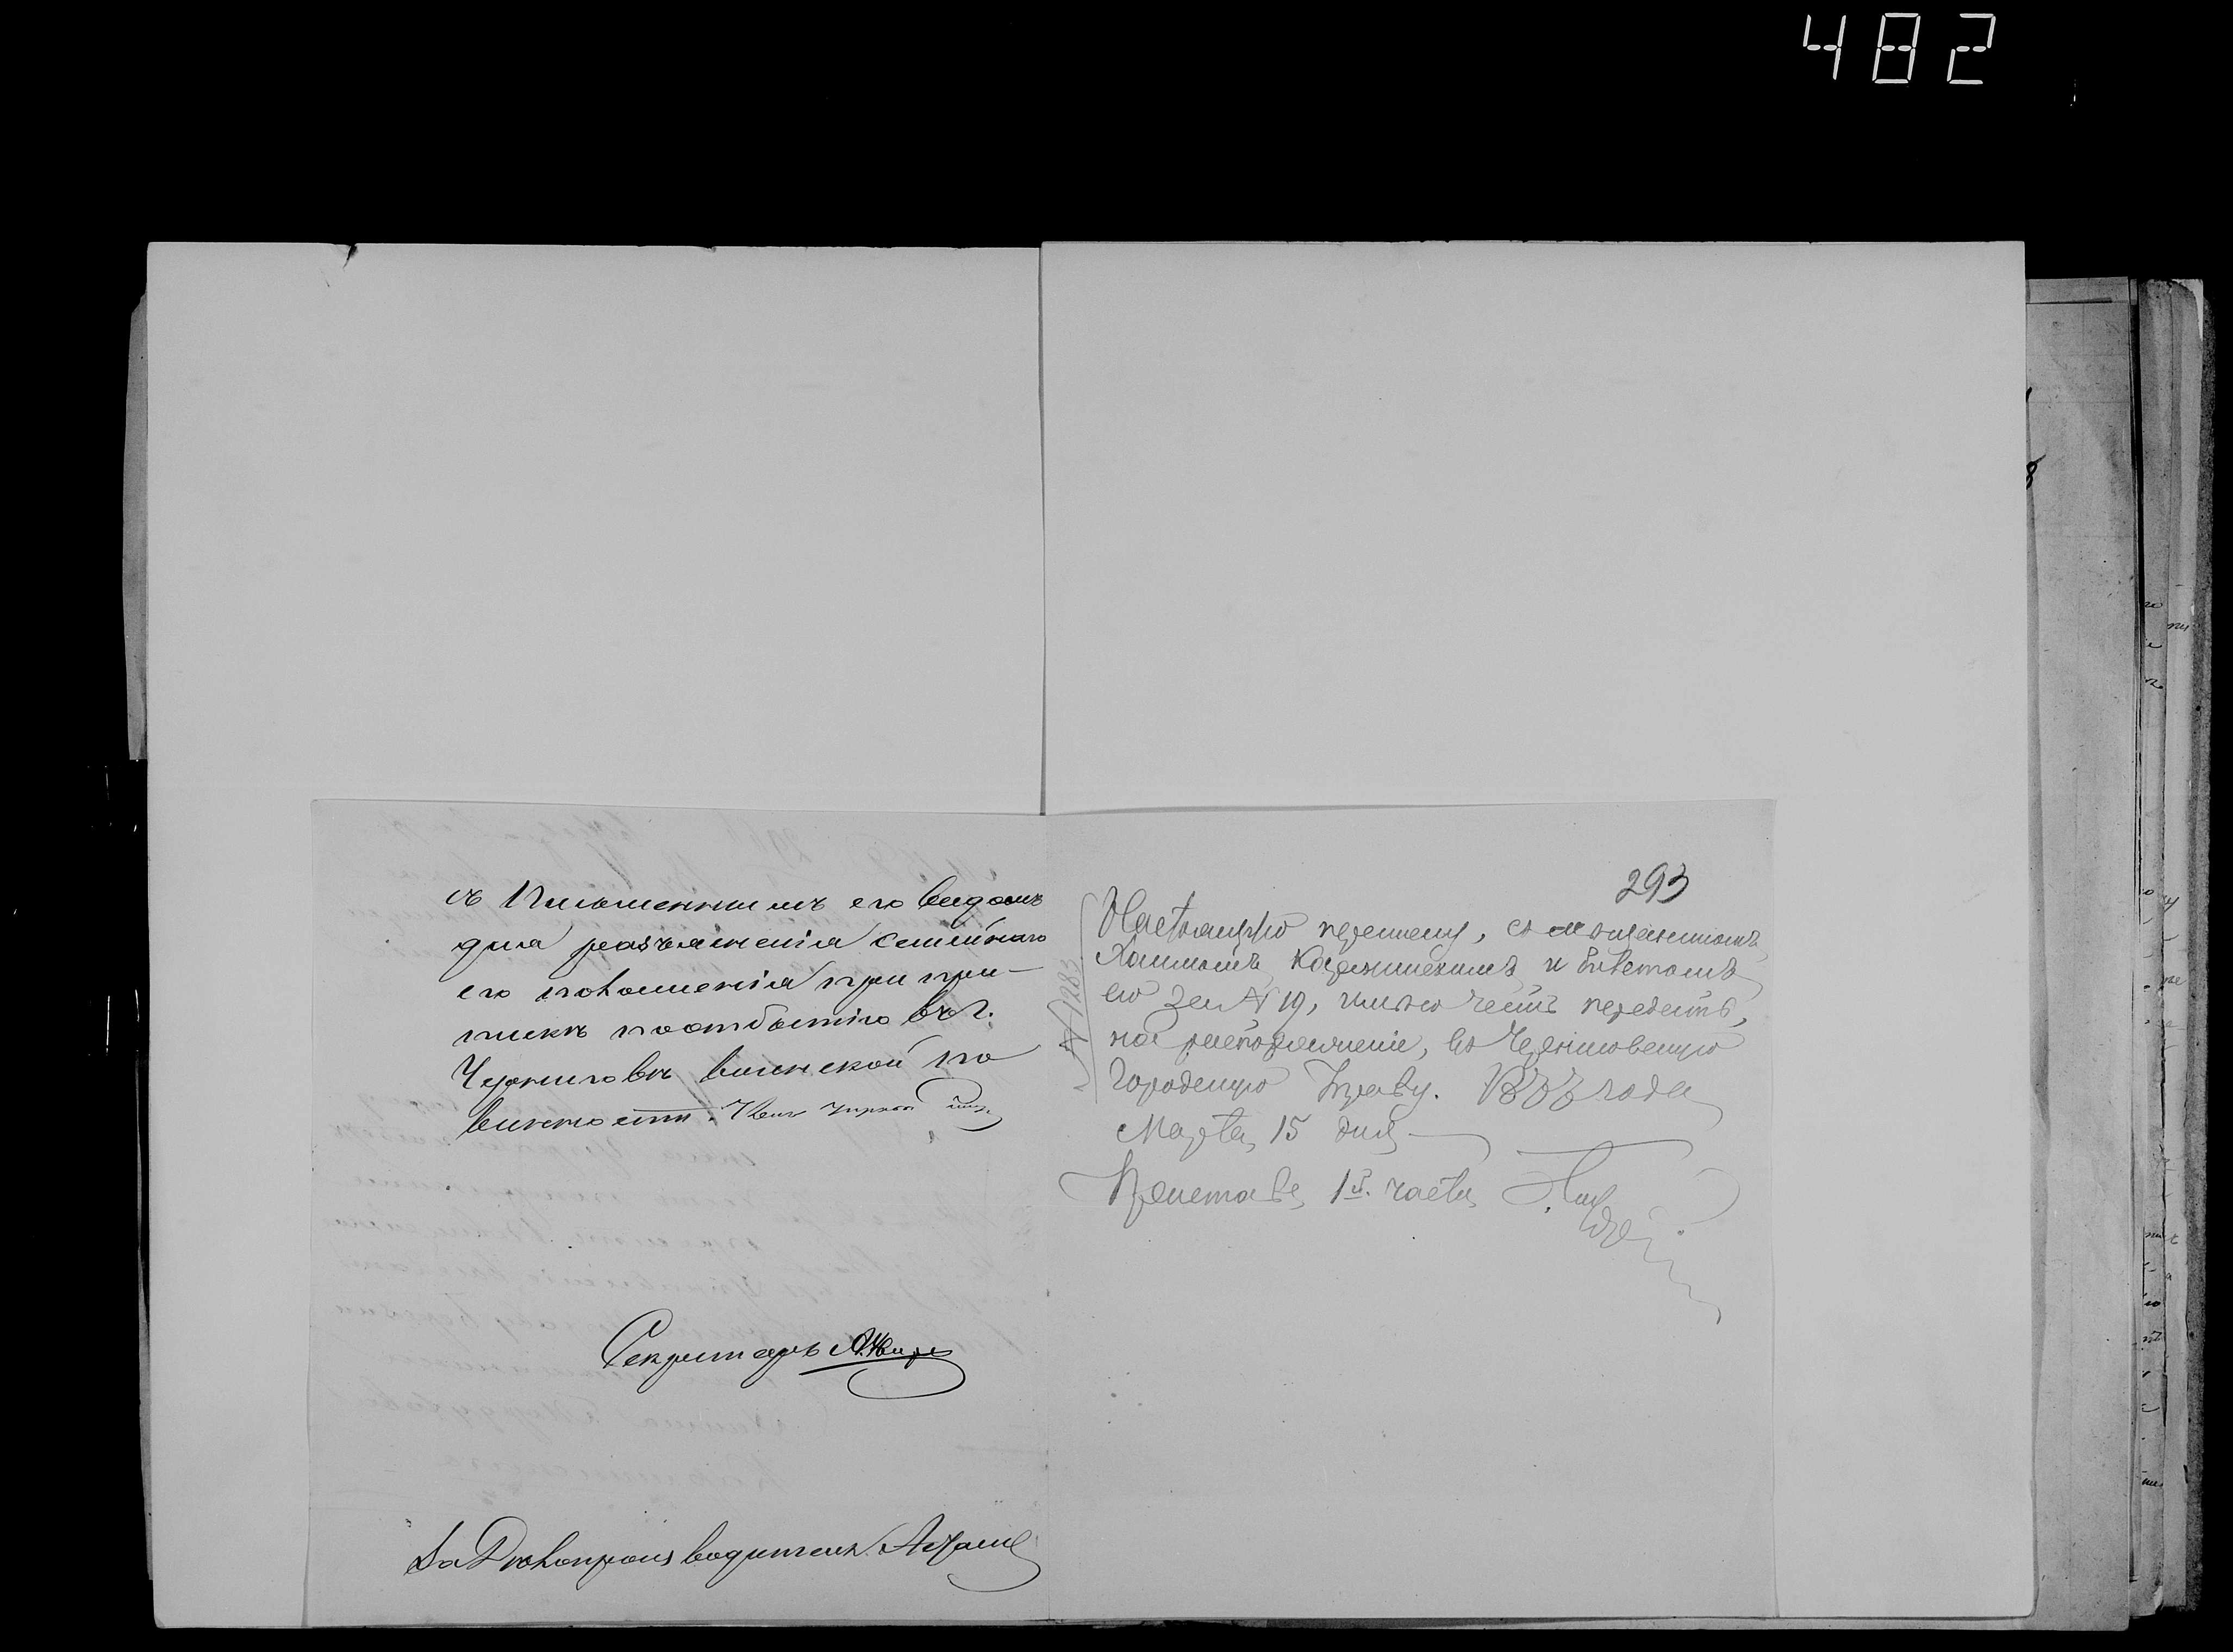 482
съ письменнымъ его видомъ
для разъясненія семейнаго
его положенія при при-
пискѣ по отбытію въ г.
Черниговѣ воинской по
винности.
Секретарь
За Дѣлопроизводителя
293
№ 1283
Настоящую переписку, съ мѣщаниномъ
Хаимомъ и билетомъ
его за № 19, имѣю честь передать,
на распоряженіе, въ Черниговскую
Городскую Управу. 1888 года
Марта 15 дня
Приставъ 1й. части